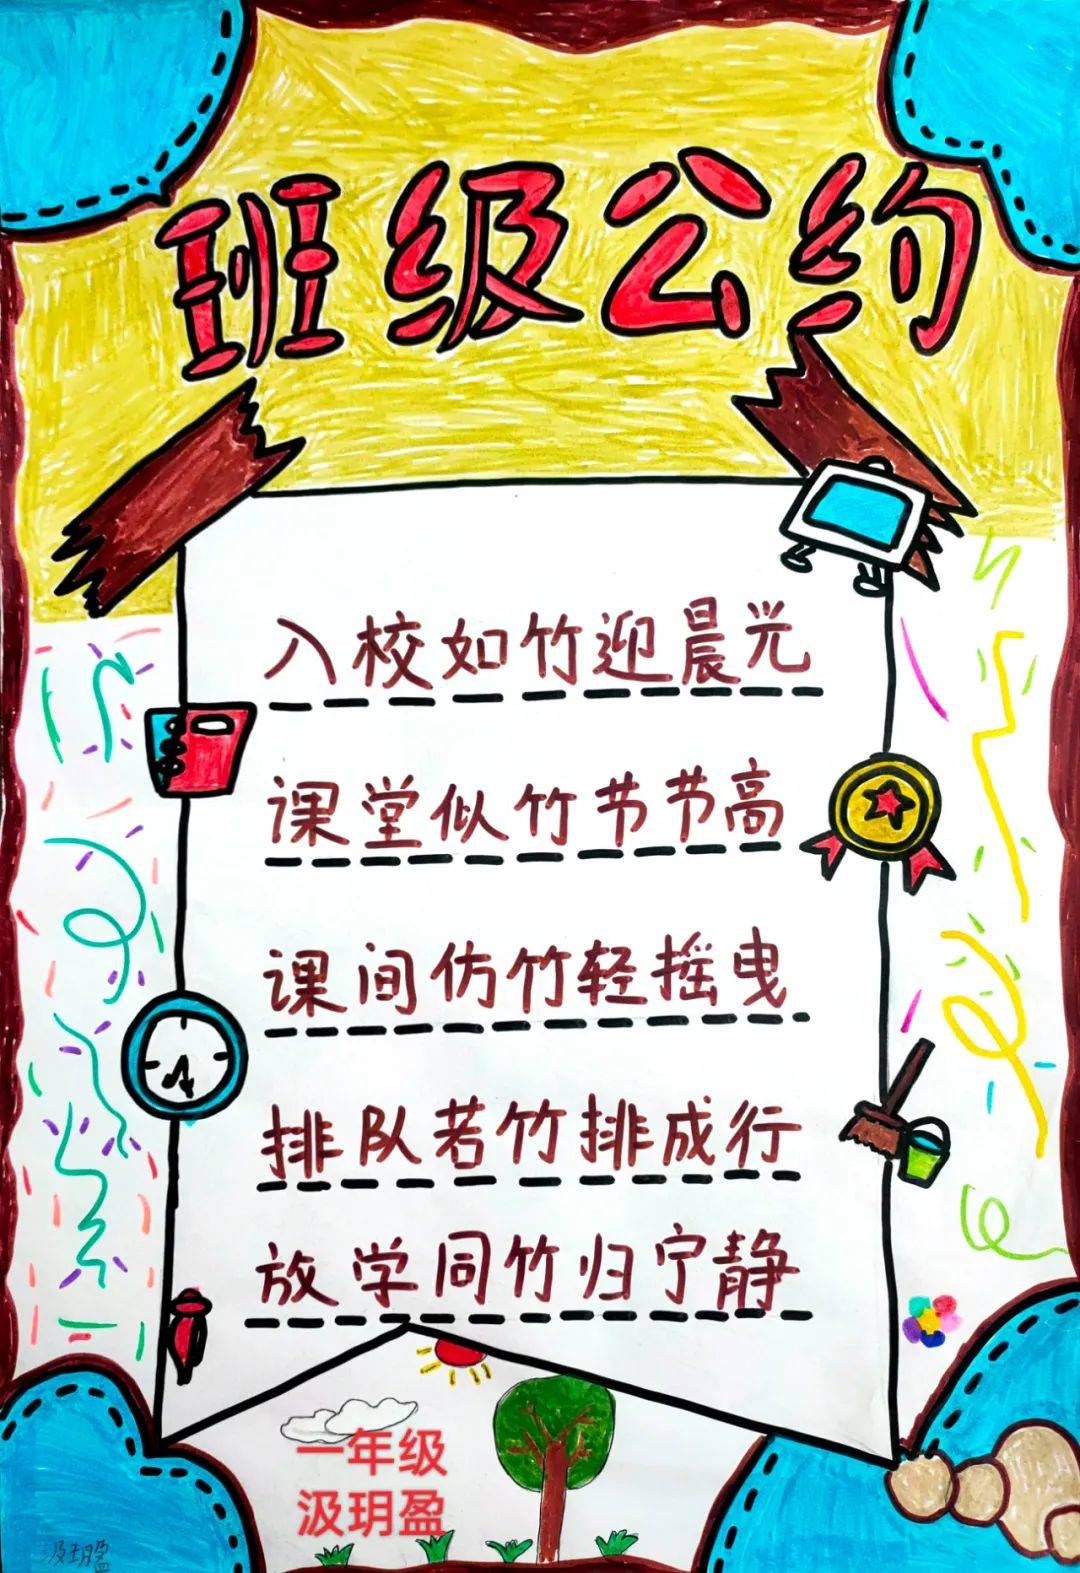 班级公约
入校如竹迎晨光
课堂似竹节节高
课间仿竹轻摇曳
排队若竹排成行
放学同竹归宁静
一年级
汲玥盈
汲玥盈